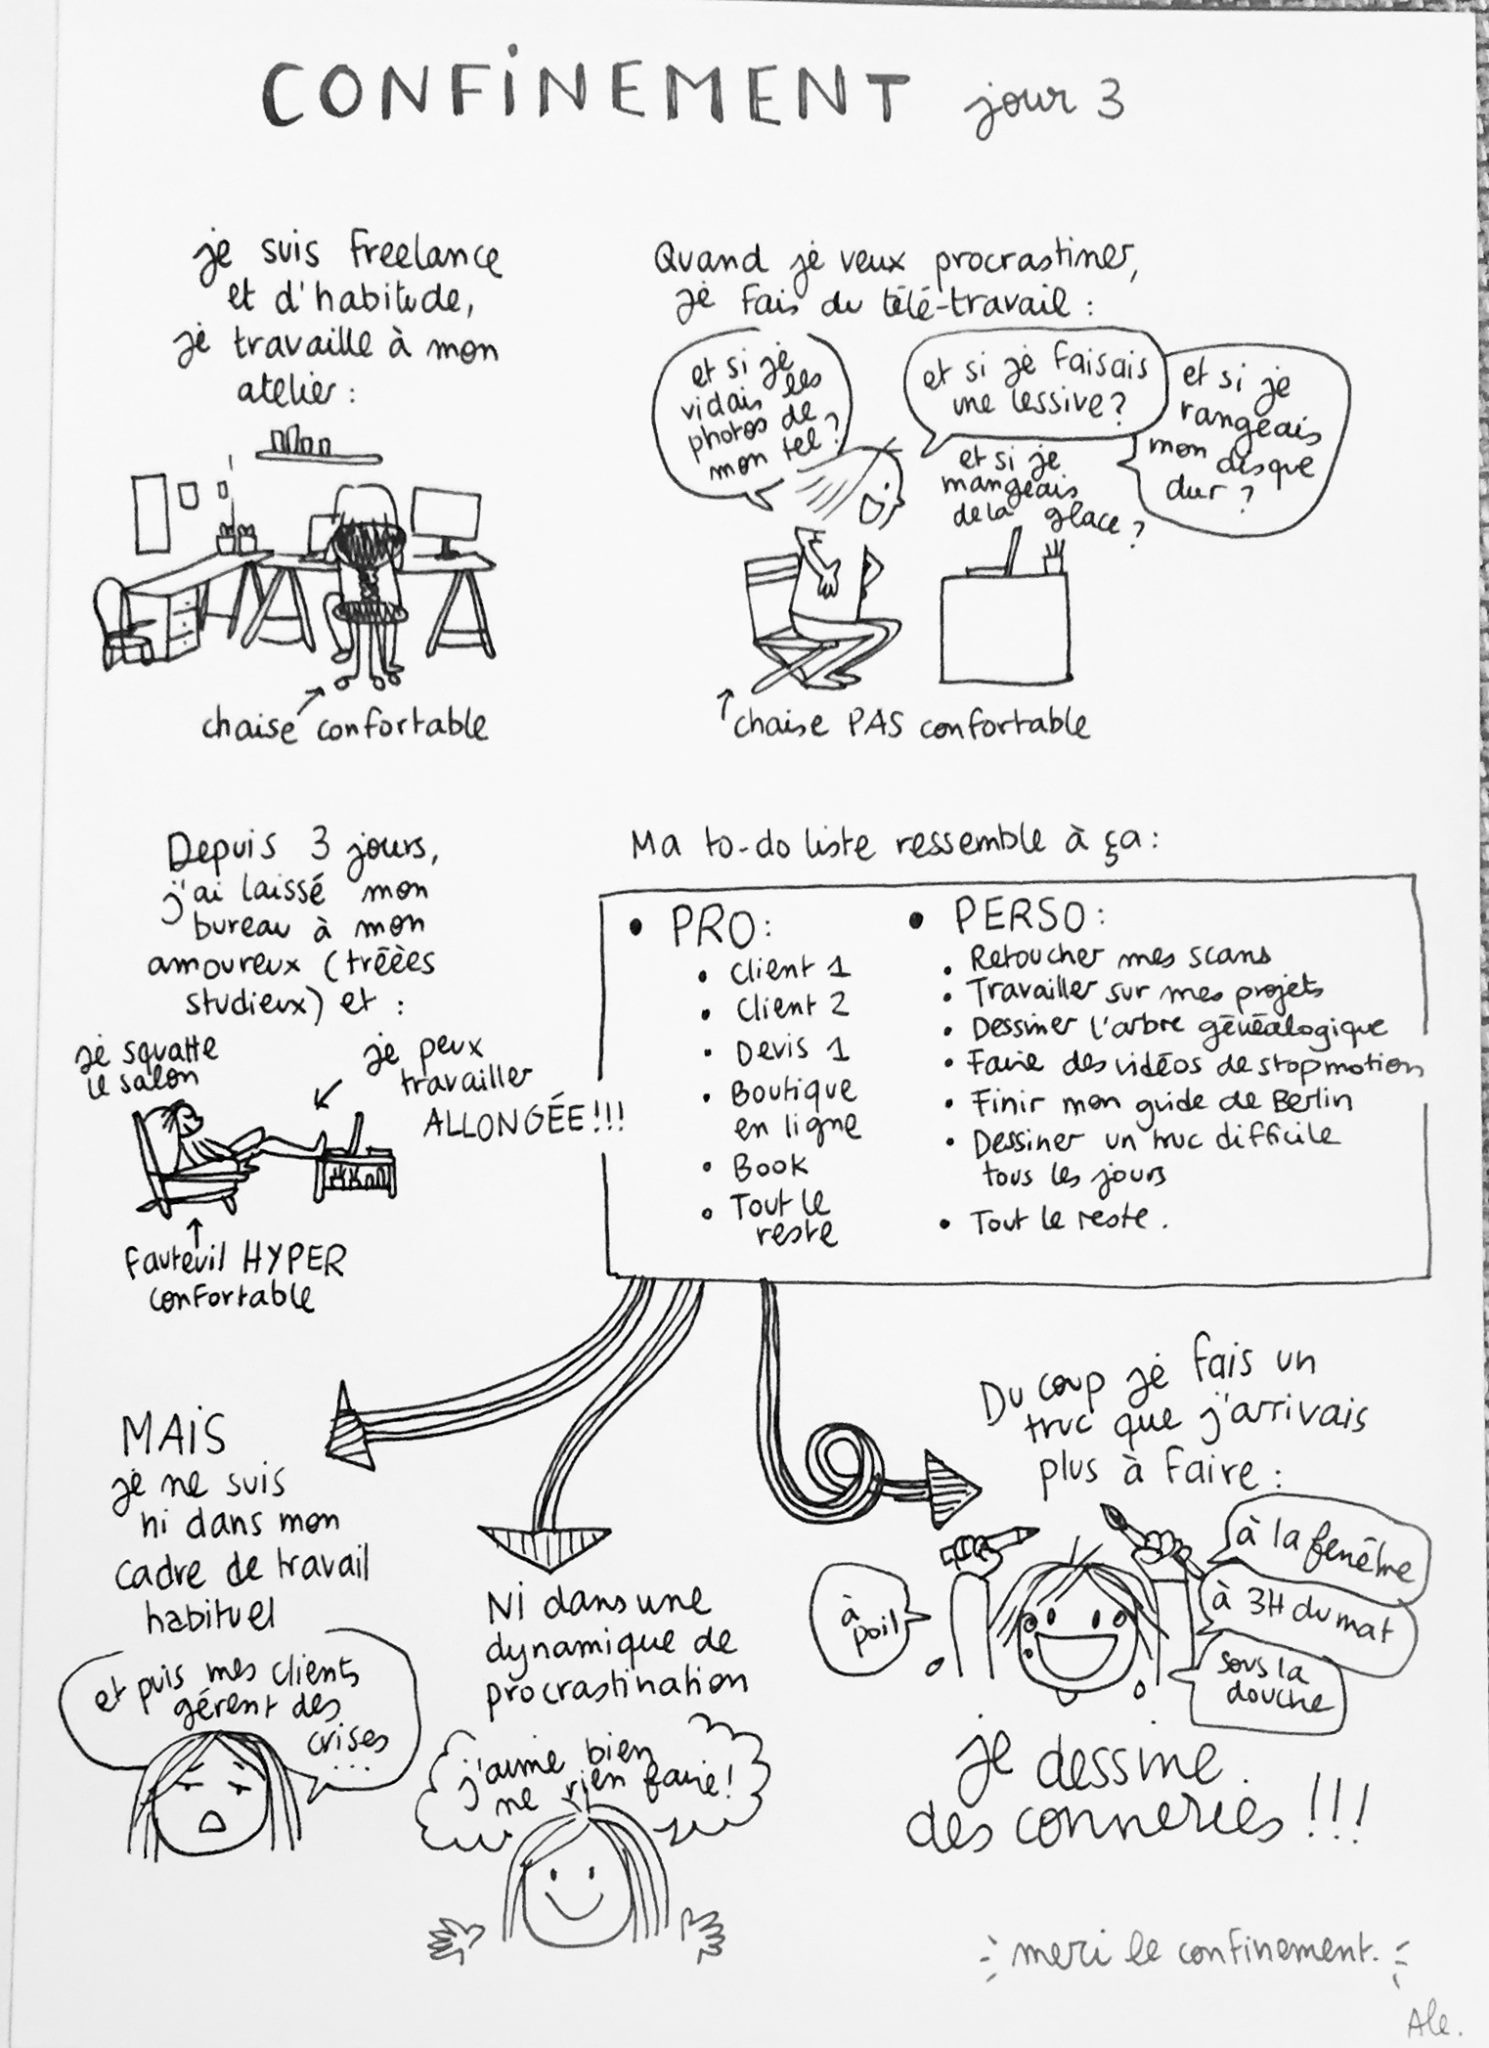 CONFINEMENT jour 3
je suis freelance
et d'habitude,
je travaille à mon
atelier :
chaise confortable
Quand je veux procrastiner,
je fais du télé-travail :
et si je
vidais les
photos de
mon tel ?
et si je faisais
une lessive ?
et si je
rangeais
mon disque
dur ?
et si je
mangeais
de la glace ?
chaise PAS confortable
Depuis 3 jours,
j'ai laissé mon
bureau à mon
amoureux (trèèes
studieux) et :
je squatte
le salon
je peux
travailler
ALLONGÉE !!!
fauteuil HYPER
confortable
Ma to-do liste ressemble à ça :
• PRO :
• Client 1
• Client 2
• Devis 1
• Boutique
en ligne
• Book
• Tout le
reste
• PERSO :
• Retoucher mes scans
• Travailler sur mes projets
• Dessiner l'arbre généalogique
• Faire des vidéos de stopmotion
• Finir mon guide de Berlin
• Dessiner un truc difficile
tous les jours
• Tout le reste.
MAIS
je ne suis
ni dans mon
cadre de travail
habituel
et puis mes clients
gérent des
crises
...
Ni dans une
dynamique de
procrastination
j'aime bien
ne rien faire !
Du coup je fais un
truc que j'arrivais
plus à faire :
à
poil
à la fenêtre
à 3H du mat
sous la
douche
je dessine
des conneries !!!
merci le confinement.
Ale.